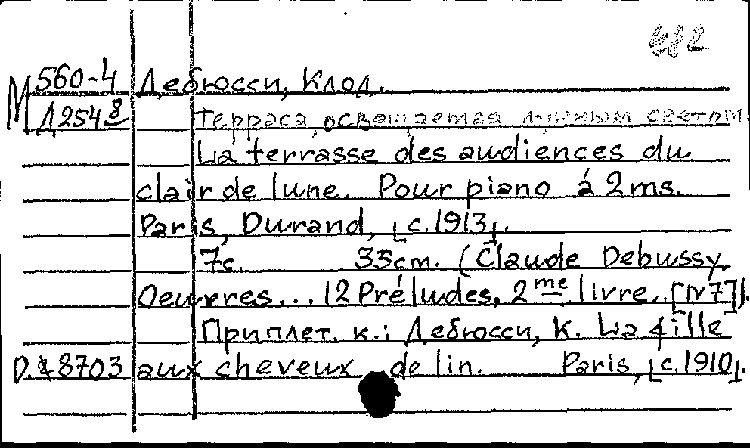 M 560-4 Дебюсси, Клод.
Д254 Терраса, освещаемая лунным светом
La terrasse des audiences du
clair de lune. Pour piano à 2 ms.
Paris, Durand, [c. 1913].
7c. 35cm. (Claude Debussy.
Oeuvres... 12 Préludes, 2me livre. [IV 7]).
Приплет. к.: Дебюсси, К. La fille
8703 aux cheveux de lin. Paris, [c. 1910].